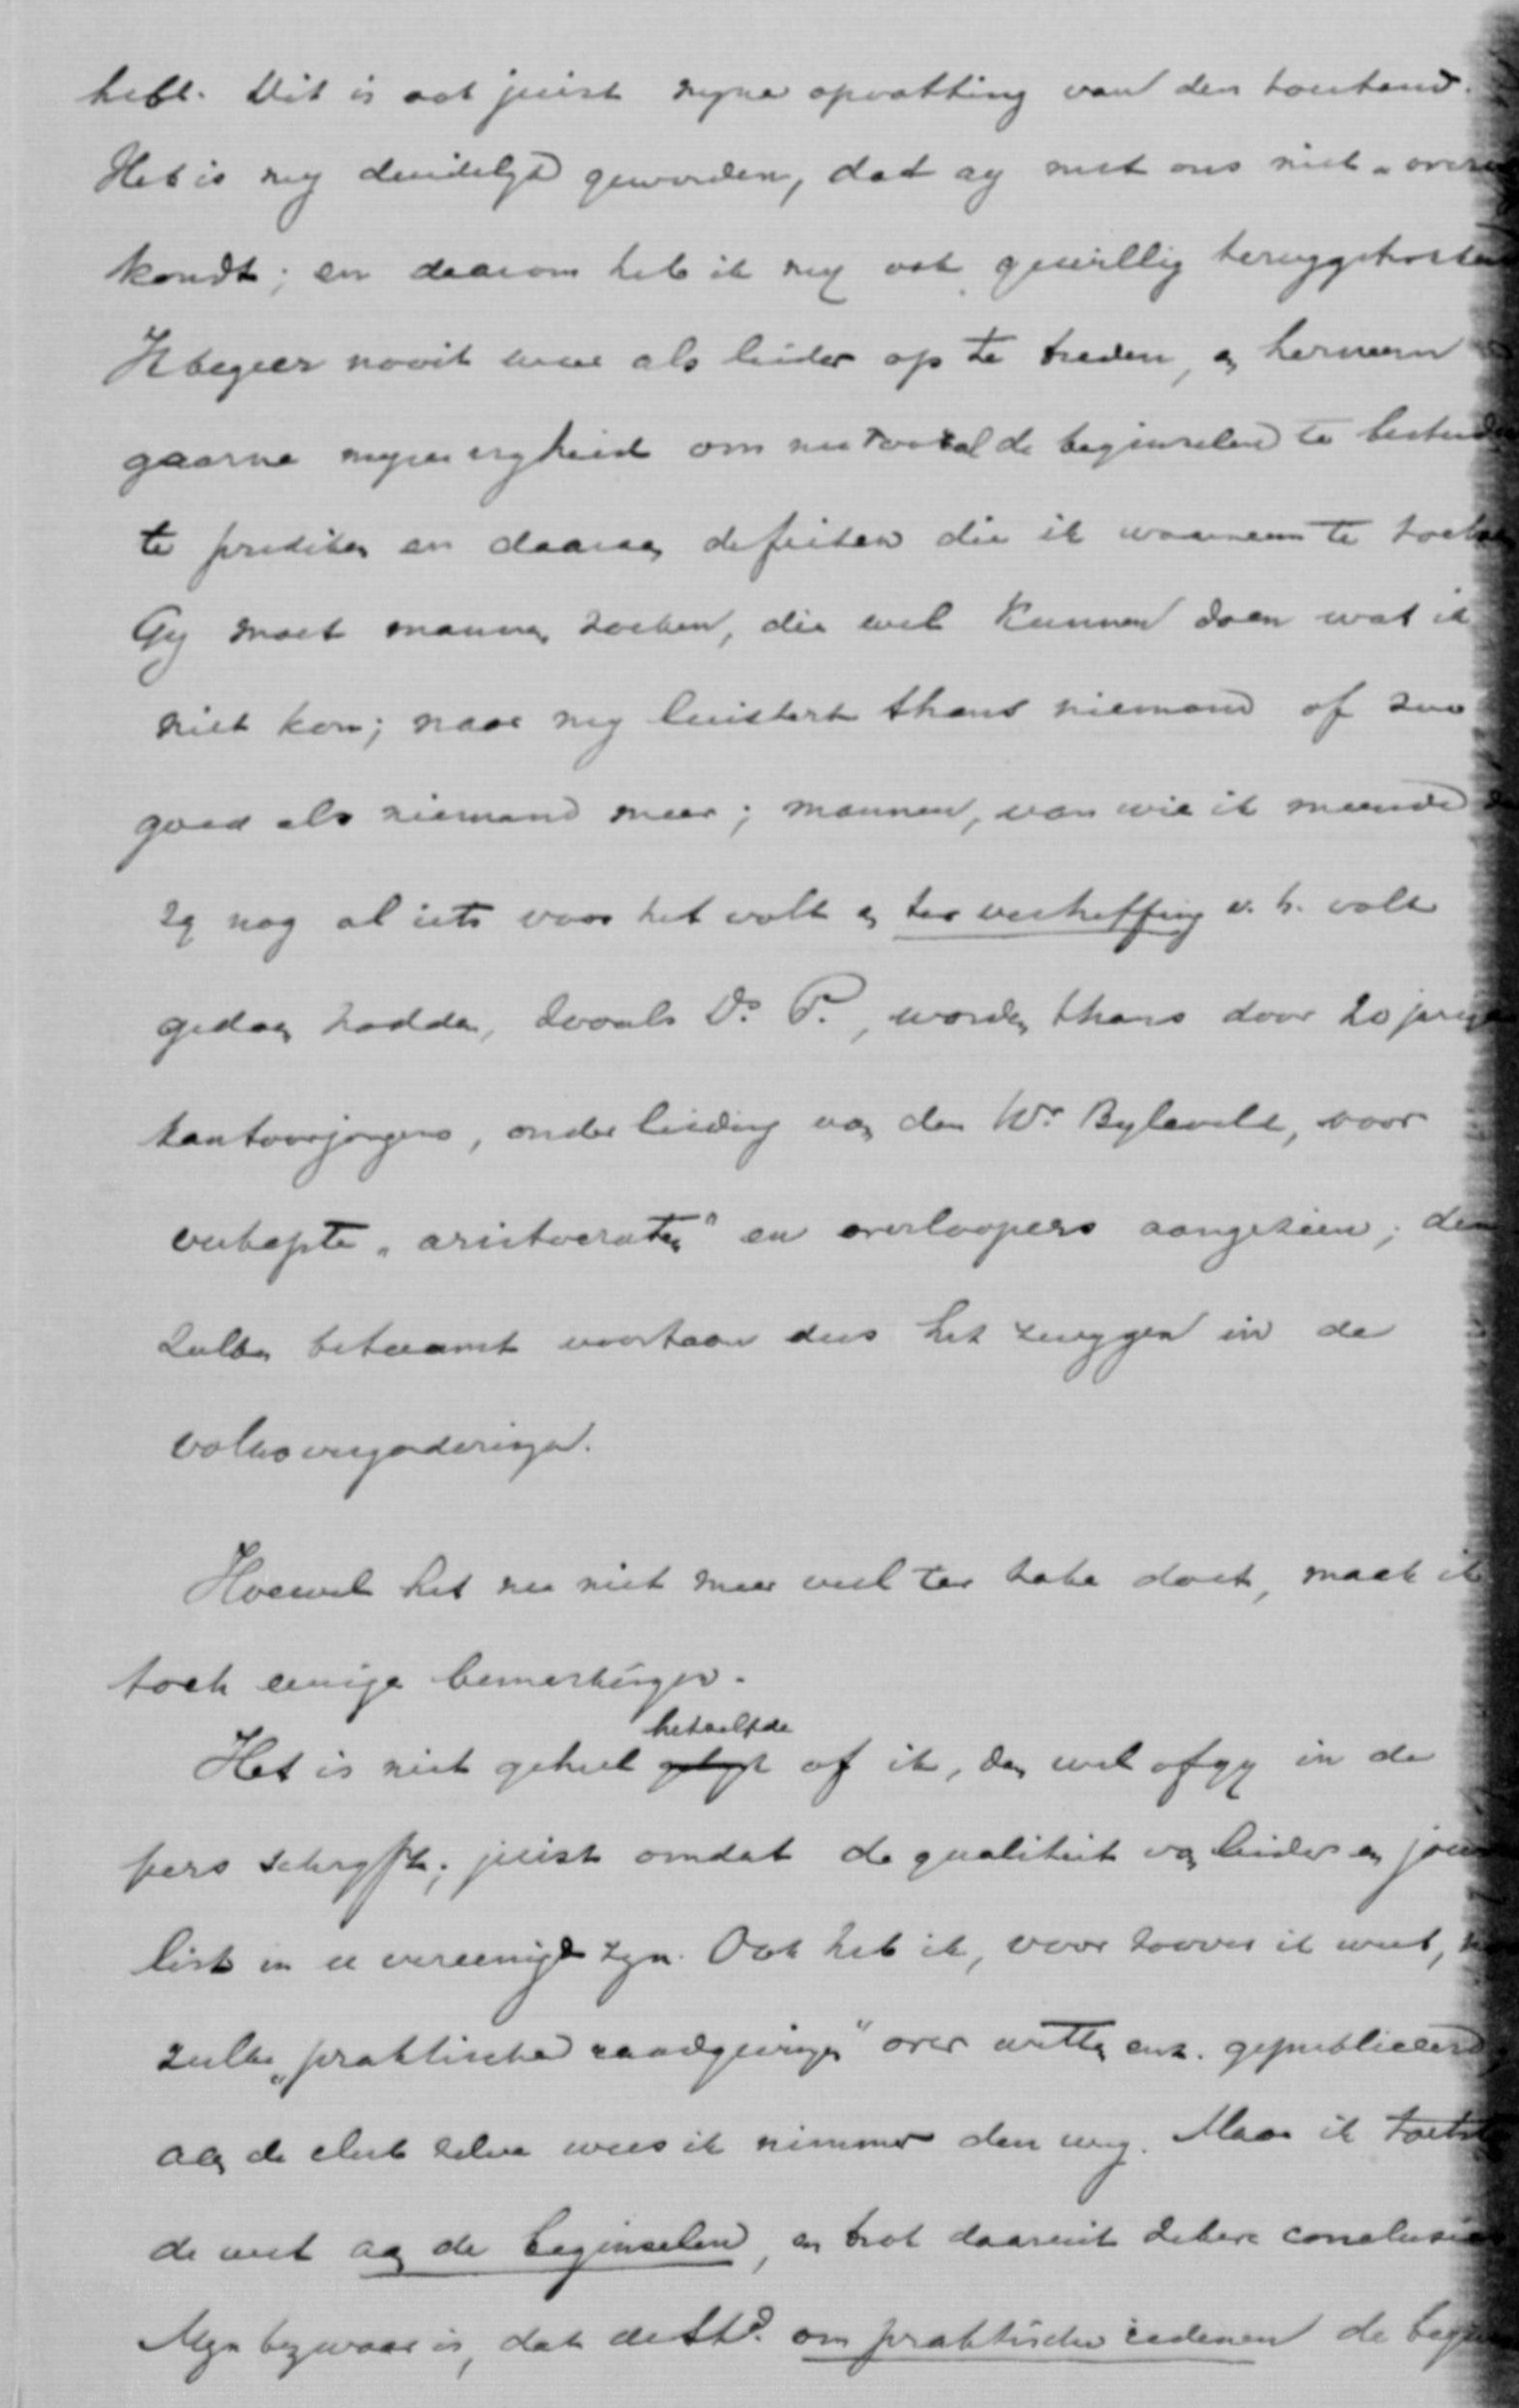 hebt. Dit is ook juist myne opvatting van den toestand.
Het is my duidelyk geworden, dat gy met ons niet „overweg
kondt; en daarom heb ik my ook gewillig teruggetrokken
Ik begeer nooit weer als leider op te treden, en herneem
gaarne myne vryheid om nu vooral de beginselen te bestudeeren
te prediken en daaraan de feiten die ik waarneem te toetsen
Gy moet mannen zoeken, die wel kunnen doen wat ik
niet kon; naar my luistert thans niemand of zoo
goed als niemand meer; mannen, van wie ik meende
zy nog al iets voor het volk en ter verheffing v. h. volk
gedaan hadden, zooals Ds. P., worden thans door 20 jarige
kantoorjongens, onder leiding van den Wr. Byleveld, voor
verkapte „aristocraten" en overloopers aangezien; den
zulken betaamt voortaan dus het zwygen in de
volksvergaderingen.
Hoewel het nu niet meer veel ter zake doet, maak ik
toch eenige bemerkingen.
Het is niet geheel hetzelfde of ik, dan wel of gy in de
pers schryft; juist omdat de qualiteit van leider en jour
list in u vereenigd zyn. Ook heb ik, voor zoover ik weet,
zulke „praktische raadgevingen" over wetten enz. gepubliceerd,
aan de club zelve wees ik nimmer den weg. Maar ik toetste
de wet aan de beginselen, en trok daaruit zekere conclusies
Myn bezwaar is, dat de Std. om praktische redenen de